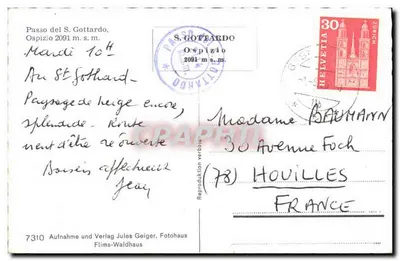 Passo del S. Gottardo,
Ospizio 2091 m. s. m.
Mardi 10H
Au St Gothard
Paysage de neige encore,
splendide. Route
vient d'être réouverte
Baisers affectueux
Jean
S. GOTTARDO
Ospizio
2091 m. s. m.
PASSO
GOTTARDO
30
HELVETIA
ZÜRICH
Madame BAUMANN
30 Avenue Foch
(78) HOUILLES
FRANCE
Reproduktion verboten
7310 Aufnahme und Verlag Jules Geiger, Fotohaus
Flims-Waldhaus
CPARAMA